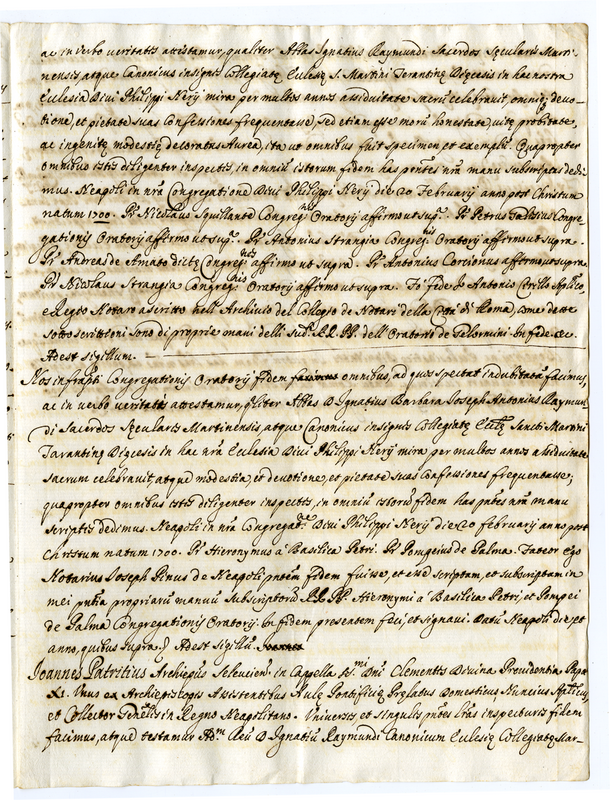 ac in verbo veritatis attestamur, qualiter Abbas Ignatius Raymundi Sacerdos Sęcularis Marti-
nensis, atque Canonicus insignis Collegiatę Eclesię S. Martini Tarantinę Dięcesis in hac nostra
Eclesia Divi Philippi Nerij mira per multos annos assiduitate sacrū celebravit, omniq; devo-
tione, et pietate suas Confessiones frequentasse, sed etiam esse morū honestate, vitę probitate,
ac ingenitę modestię decoratus Aurea, ita ut omnibus fuit specimen et exemplū. Quapropter
omnibus istis diligenter inspectis, in omniū istorum fidem has pn̄tes nr̄a manu subscriptas dedi-
mus. Neapoli in nr̄a Congregatione Divi Philippi Nerij die 20 Februarij anno post Christum
natum 1700. Pr̄ Nicolaus Squillante Congreg.nis Oratorij affirmo ut sup.a Pr̄ Petrus Congre-
gationis Oratorij affirmo ut sup.a Pr̄ Antonius Strangia Congreg.nis Oratorij affirmo ut supra.
Pr̄ Andreas de Amato dictę Congreg.nis affirmo ut supra. Pr̄ Antonius Corcionus affirmo ut supra
Pr̄ Nicolaus Strangia Congreg.nis Oratorij affirmo ut supra. Fò fede Io Antonio Cirillo Aplico,
e Regio Notaro ascritto nell' Archivio del Collegio de Notari della Città di Roma, come dette
sottoscrittioni sono di proprie mani delli sud.i RR. PP. dell' Oratorio de Gelormini. In fede &c.
Adest sigillum.
Nos infrapti Congregationis Oratorij fidem facimus omnibus, ad quos spectat indubitatā facimus,
ac in verbo veritatis attestamur, qliter Abbas D. Ignatius Barbara Joseph Antonius Raymun-
di Sacerdos Sęcularis Martinensis, atque Canonicus insignis Collegiatę Ecclę Sancti Martini
Tarantinę Dięcesis in hac nr̄a Eclesia Divi Philippi Nerij mira per multos annos assiduitate
sacrum celebravit, atque modestia, et devotione, et pietate suas Confessiones frequentasse;
quapropter omnibus istis diligenter inspectis, in omniū istorū fidem has pn̄tes nr̄a manu
scriptas dedimus. Neapoli in nr̄a Congregat.e Divi Philippi Nerij die 20 februarij anno post
Christum natum 1700. Pr̄ Hieronymus à Basilica Petri. Pr̄ Pompeius de Palma. Fateor ego
Notarius Joseph Pinus de Neapoli pn̄tem fidem fuisse, et esse scriptam, et subscriptam in
mei pn̄tia propriarū manuū subscriptorū RR. PP. Hieronymi à Basilica Petri, et Pompei
de Palma Congregationis Oratorij. In fidem presentem feci, et signavi. Datū Neapoli die, et
anno, quibus supra. Adest Sigillū.
Joannes Patritius Archiepūs Seleucien' in Capella S.mi Dn̄i Clementis Divina Providentia Papę
XI. Unus ex Archiepiscopis Assistentibus Aulę Pontificię Pręlatus Domesticus Nuncius Aplicus,
et Collector Gen̄alis in Regno Neapolitano. Universis et singulis pn̄tes lr̄as inspecturis fidem
facimus, atque testamur Adm. Reū D. Ignatiū Raymundi Canonicum Eclesię Collegiatę Mar-